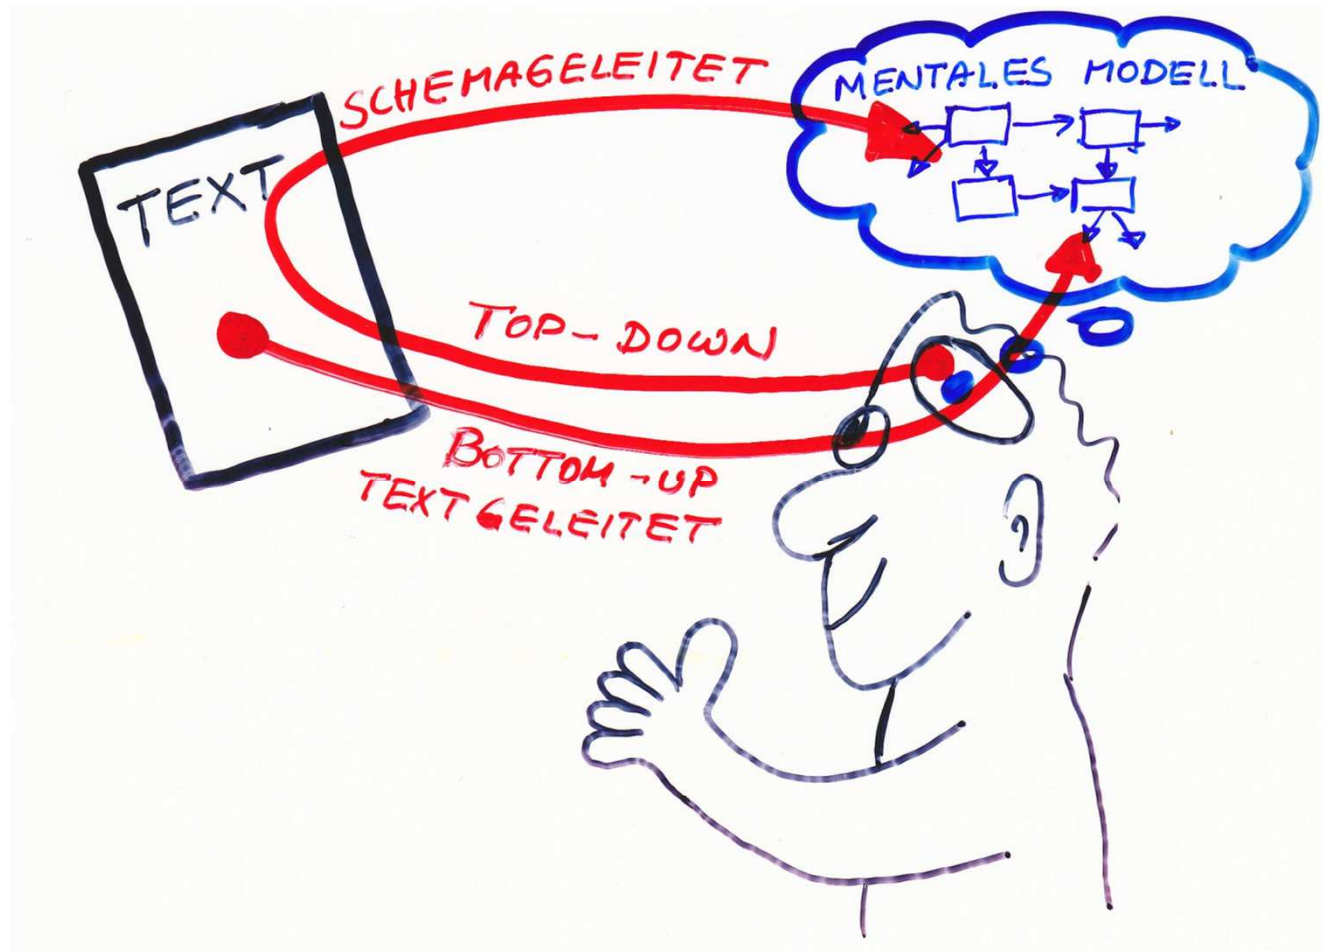 SCHEMAGELEITET
MENTALES MODELL
TEXT
TOP-DOWN
BOTTOM-UP
TEXTGELEITET